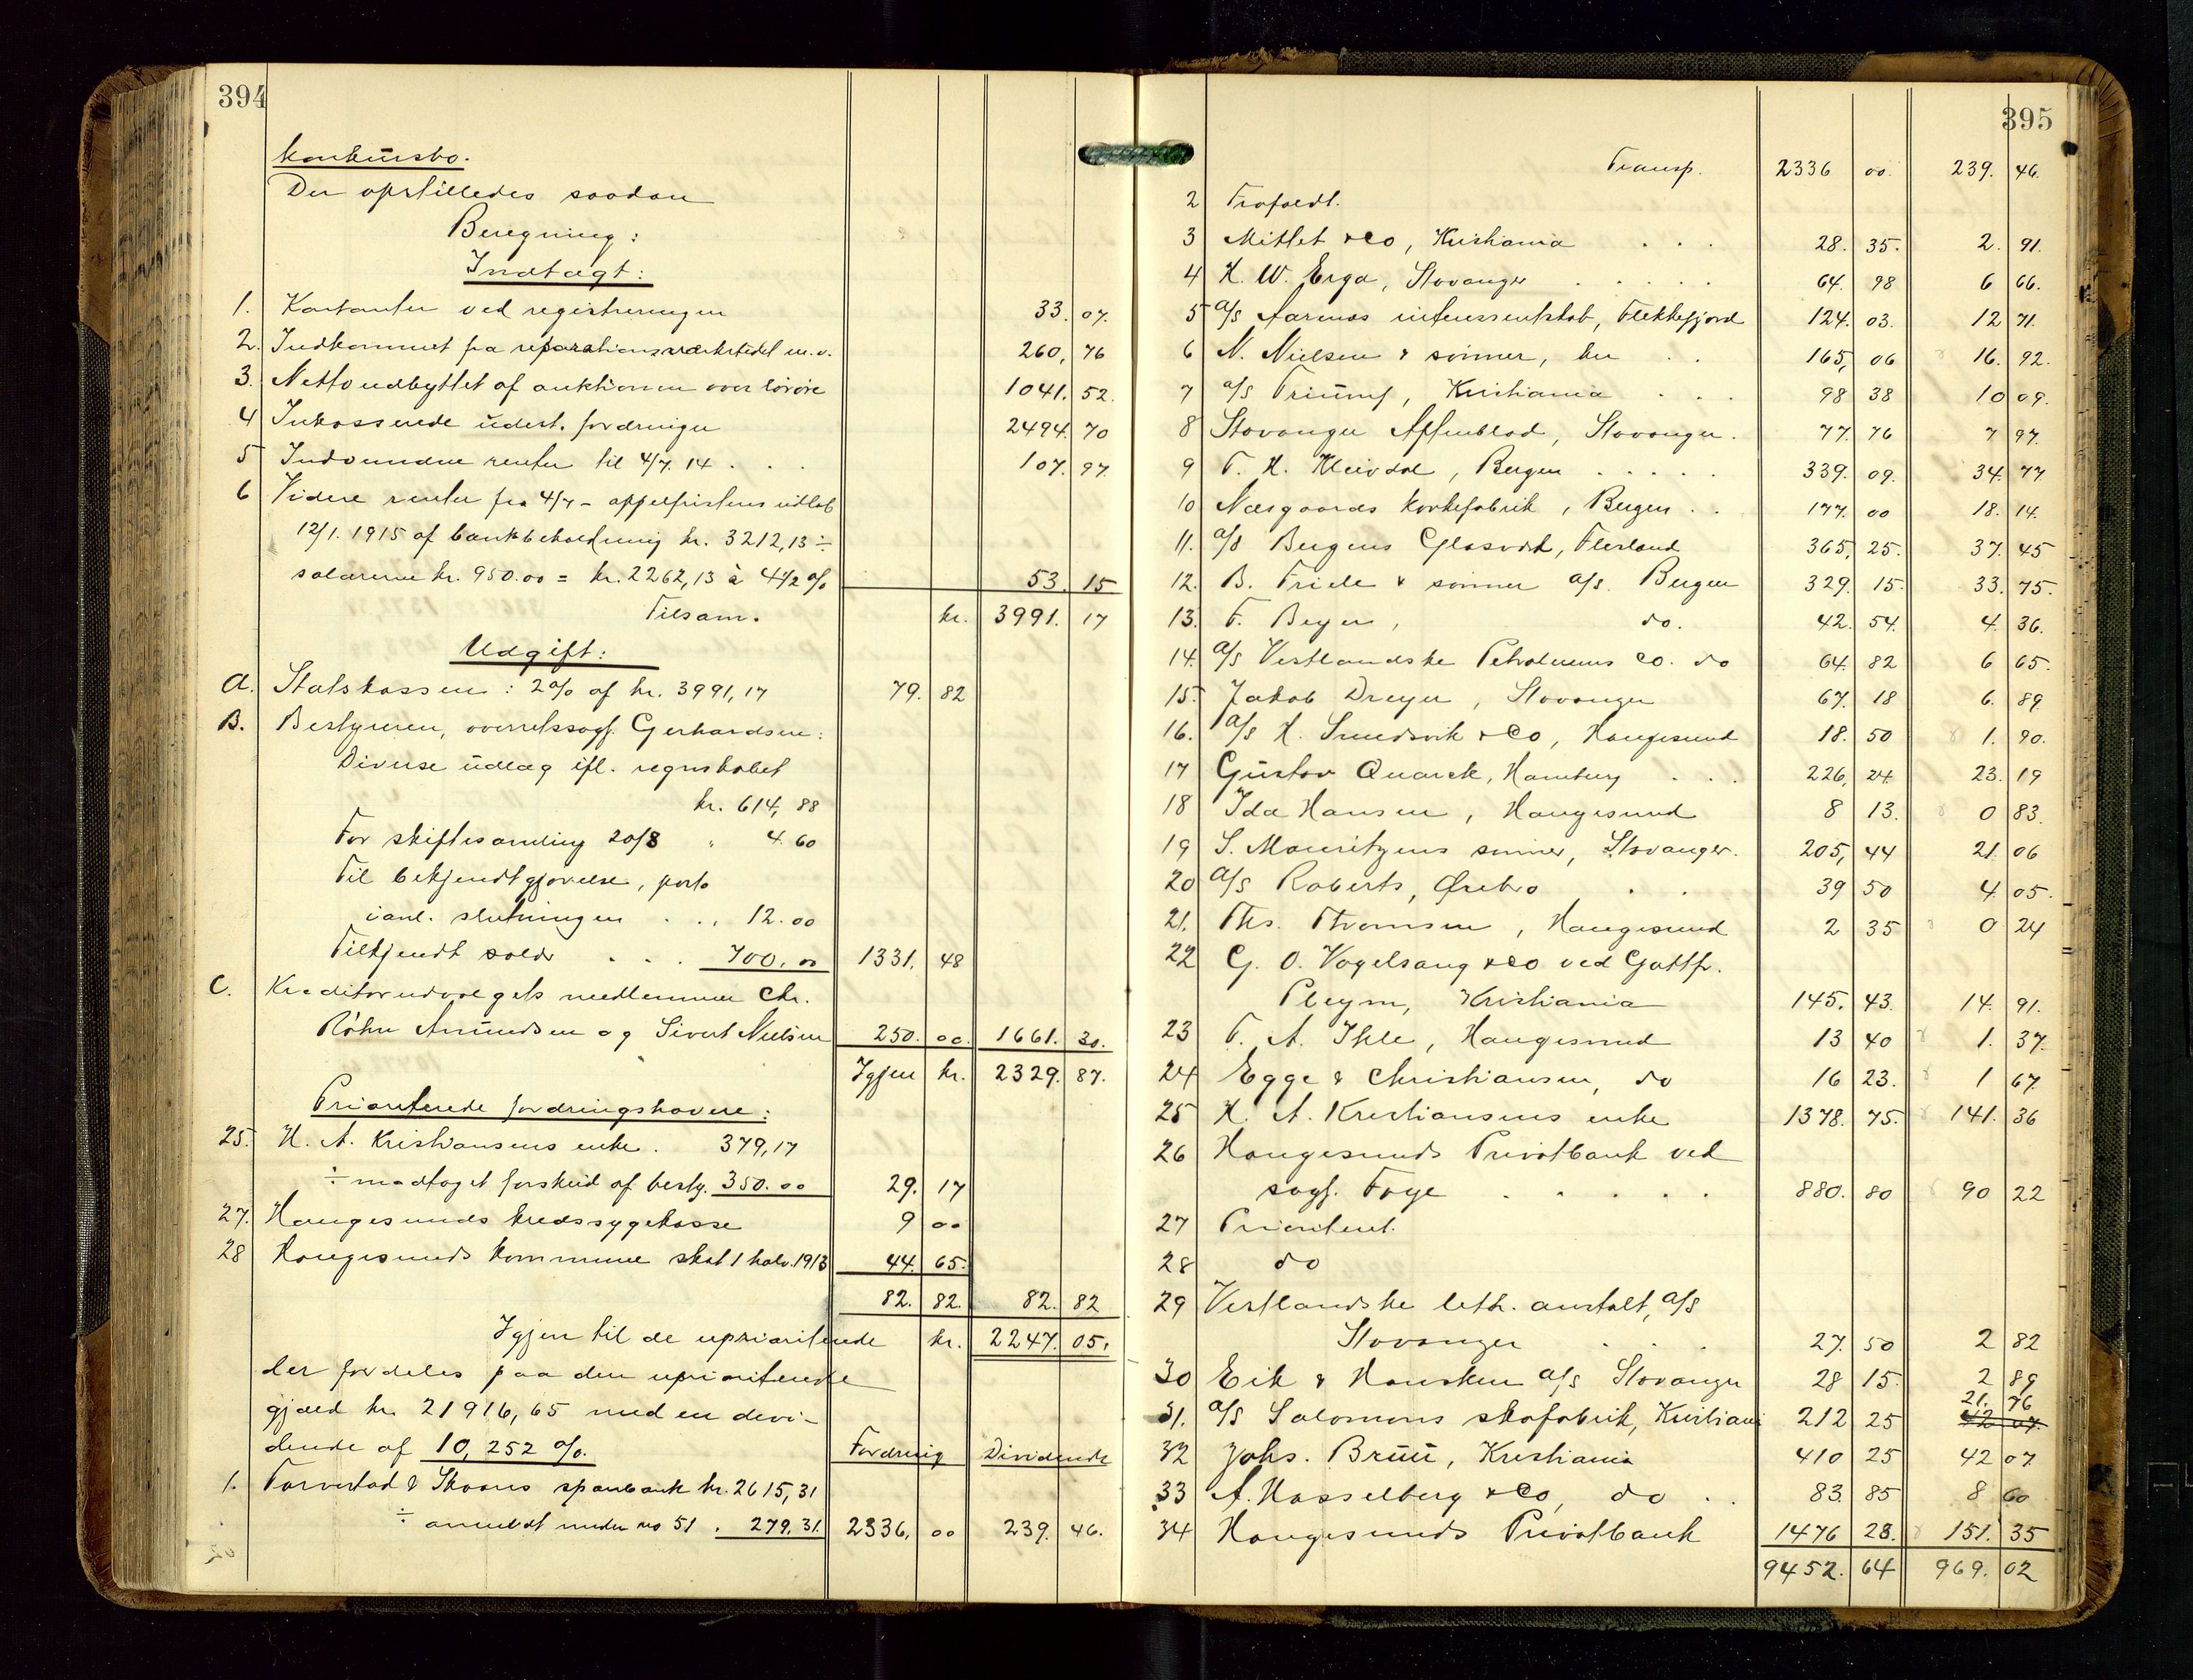 394
konkursbo.
Der opstilledes saadan
Beregning:
Indtægt:
1. Kontanter ved registreringen 33. 07.
2. Indkommet fra reparationsværkstedet m.v. 260, 76
3. Nettoudbyttet af auktionen over løsøre 1041. 52.
4 Inkasserede udest. fordringer 2494. 70
5 Indvundne renter til 4/7. 14 . . . 107. 97.
6 Videre renter fra 4/7 - appelfristens udløb
12/1. 1915 af bankbeholdning kr. 3212,13 ÷
salærerne kr. 950.00 = kr. 2262,13 à 4 1/2 % 53. 15
Tilsam. kr. 3991. 17
Udgift:
A. Statskassen: 2% af kr. 3991,17 79. 82
B. Bestyreren, overretssagf. Gerhardsen:
Diverse udlæg ifl. regnskabet
kr. 614, 88
For skiftesamling 20/8 " 4.60
Til bekjendtgjørelse, porto
i anl. slutningen . . , 12.00
Tilkjendt salær . . . 700.00 1331. 48
C. Kreditorudvalgets medlemmer Chr.
Røhr Amundsen og Sivert Nielsen 250. 00. 1661. 30.
Igjen kr. 2329. 87.
Prioriterede fordringshavere:
25. H. A. Kristiansens enke . 379,17
÷ modtaget forskud af besty. 350.00 29. 17
27. Haugesunds kredssygekasse 9 00
28 Haugesunds kommune skat 1 halv. 1913 44. 65.
82. 82. 82. 82
Igjen til de uprioriterede kr. 2247. 05.
der fordeles paa den uprioriterede
gjæld kr. 21916,65 med en divi-
dende af 10,252 %. Fordring Dividende
1. Torvestad & Skaares sparebank kr. 2615,31
÷ anmeldt under no 51 . 279.31. 2336, 00 239. 46.
395
Transp. 2336 00. 239. 46.
2 Frafaldt.
3 Mittet & Co, Kristiania . . . 28. 35. 2. 91.
4 H. W. Erga, Stavanger . . . . . 64. 98 6 66.
5 a/s Aarenes interessentskab, Flekkefjord 124. 03. 12 71.
6 N. Nielsen & sønner, her . . 165, 06 16. 92.
7 a/s Triumf, Kristiania . . . 98 38 10 09.
8 Stavanger Aftenblad, Stavanger. 77. 76 7 97.
9 F. H. Kleivdal, Bergen . . . . . 339. 09. 34. 77
10 Næsgaards korkefabrik, Bergen . . 177. 00 18. 14.
11. a/s Bergens Glasværk, Flesland 365, 25. 37. 45
12. B. Friele & sønner a/s. Bergen 329. 15. 33. 75.
13. F. Beyer, do. 42. 54. 4. 36.
14. a/s Vestlandske Petroleums Co. do 64. 82 6 65.
15. Jakob Dreyer, Stavanger 67. 18 6. 89
16. a/s H. Smedsvik & Co, Haugesund 18. 50 1. 90.
17 Gustav Quarck, Hamburg . . . 226, 24. 23. 19
18 Ida Hansen, Haugesund 8 13. 0 83.
19 S. Mauritzens sønner, Stavanger. 205, 44 21. 06
20 a/s Roberts, Ørebro . . 39 50 4. 05.
21. Ths. Thomsen, Haugesund 2 35 0 24
22 G. O. Vogelsang & Co ved Gottfr.
Pleym, Kristiania 145. 43. 14. 91.
23 F. A. Ihle, Haugesund 13 40 1. 37.
24 Egge & Christiansen, do 16 23. 1 67.
25 H. A. Kristiansens enke 1378. 75. 141. 36
26 Haugesunds Privatbank ved
sagf. Foye . . . . . 880. 80 90 22
27 Prioritert.
28 do
29 Vestlandske lith. anstalt, a/s
Stavanger . . . 27. 50 2 82
30 Eik & Hausken a/s Stavanger 28 15. 2 89
31. a/s Salomons skofabrik, Kristiani 212 25 21. 76 42 07.
32 Johs. Bruu, Kristiania 410 25 42 07.
33 A. Hasselberg & Co, do . . 83. 85 8 60
34 Haugesunds Privatbank 1476 28. 151. 35
9452. 64 969. 02